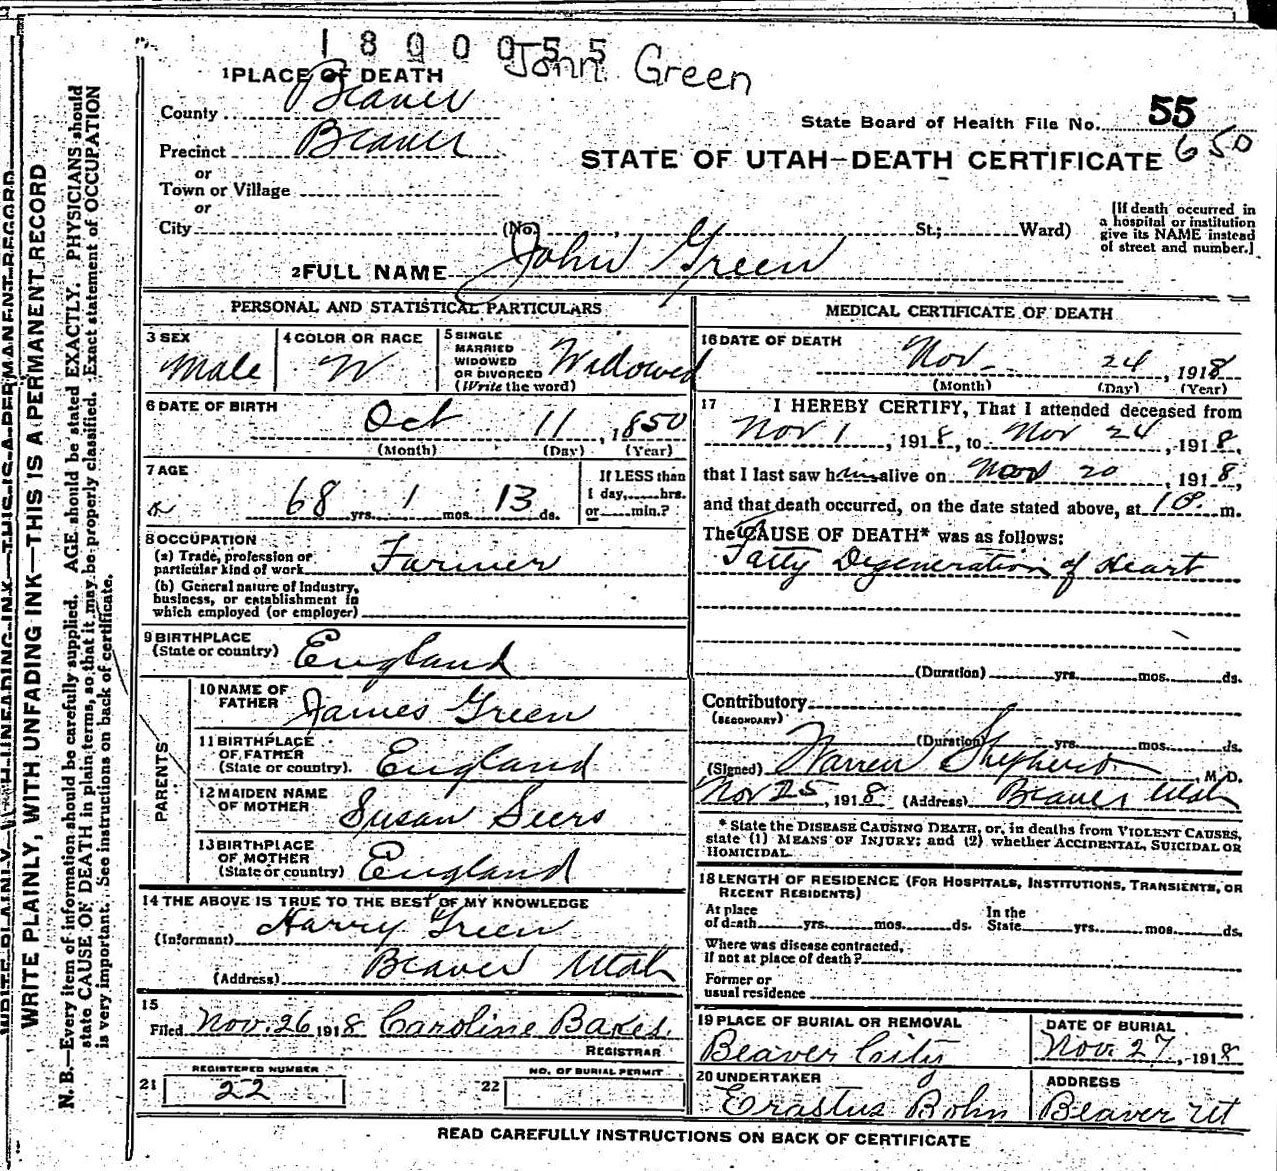 1800055
John Green
1 PLACE OF DEATH
County Beaver
Precinct Beaver
or
Town or Village
or
City (No. St.; Ward)
State Board of Health File No. 55
650
STATE OF UTAH—DEATH CERTIFICATE
[If death occurred in
a hospital or institution
give its NAME instead
of street and number.]
2 FULL NAME John Green
PERSONAL AND STATISTICAL PARTICULARS
3 SEX Male
4 COLOR OR RACE W
5 SINGLE
MARRIED
WIDOWED
OR DIVORCED
(Write the word) Widowed
6 DATE OF BIRTH Oct 11, 1850
(Month) (Day) (Year)
7 AGE
68 yrs. 1 mos. 13 ds.
If LESS than
1 day, hrs.
or min.?
8 OCCUPATION
(a) Trade, profession or
particular kind of work Farmer
(b) General nature of Industry,
business, or establishment in
which employed (or employer)
9 BIRTHPLACE
(State or country) England
PARENTS
10 NAME OF
FATHER James Green
11 BIRTHPLACE
OF FATHER
(State or country). England
12 MAIDEN NAME
OF MOTHER Susan Seers
13 BIRTHPLACE
OF MOTHER
(State or country) England
14 THE ABOVE IS TRUE TO THE BEST OF MY KNOWLEDGE
(Informant) Harry Green
(Address) Beaver Utah
15
Filed Nov. 26 1918 Caroline Bakes.
REGISTRAR
REGISTERED NUMBER
21 22
NO. OF BURIAL PERMIT
22
MEDICAL CERTIFICATE OF DEATH
16 DATE OF DEATH Nov- 24, 1918
(Month) (Day) (Year)
17 I HEREBY CERTIFY, That I attended deceased from
Nov 1, 1918, to Nov 24, 1918,
that I last saw him alive on Nov 20, 1918,
and that death occurred, on the date stated above, at 10 m.
The CAUSE OF DEATH* was as follows:
Fatty Degeneration of Heart
(Duration) yrs. mos. ds.
Contributory
(SECONDARY)
(Duration) yrs. mos. ds.
(Signed) Warren Shepherd, M. D.
Nov 25, 1918 (Address) Beaver Utah
* State the DISEASE CAUSING DEATH, or, in deaths from VIOLENT CAUSES,
state (1) MEANS OF INJURY; and (2) whether ACCIDENTAL, SUICIDAL OR
HOMICIDAL.
18 LENGTH OF RESIDENCE (FOR HOSPITALS, INSTITUTIONS, TRANSIENTS, OR
RECENT RESIDENTS)
At place
of death yrs. mos. ds.
In the
State yrs. mos. ds.
Where was disease contracted,
if not at place of death?
Former or
usual residence
19 PLACE OF BURIAL OR REMOVAL
Beaver City
DATE OF BURIAL
Nov. 27, 1918
20 UNDERTAKER
Erastus Bohn
ADDRESS
Beaver Ut
READ CAREFULLY INSTRUCTIONS ON BACK OF CERTIFICATE
WRITE PLAINLY, WITH UNFADING INK—THIS IS A PERMANENT RECORD
WRITE PLAINLY, WITH UNFADING INK—THIS IS A PERMANENT RECORD
N. B.—Every item of information should be carefully supplied. AGE should be stated EXACTLY. PHYSICIANS should
state CAUSE OF DEATH in plain terms, so that it may be properly classified. Exact statement of OCCUPATION
is very important. See instructions on back of certificate.